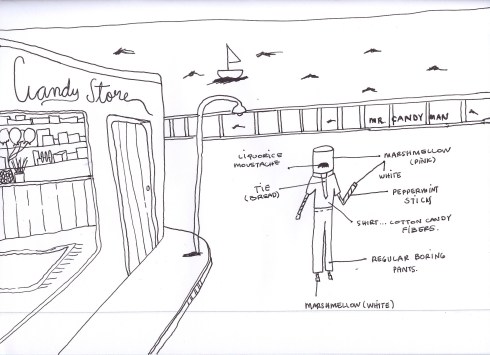 Candy Store
MR. CANDY MAN
LIQUORICE
MOUSTACHE
MARSHMELLOW
(PINK)
WHITE
TIE
(BREAD)
PEPPERMINT
STICK
SHIRT... COTTON CANDY
FIBERS.
REGULAR BORING
PANTS.
MARSHMELLOW (WHITE)